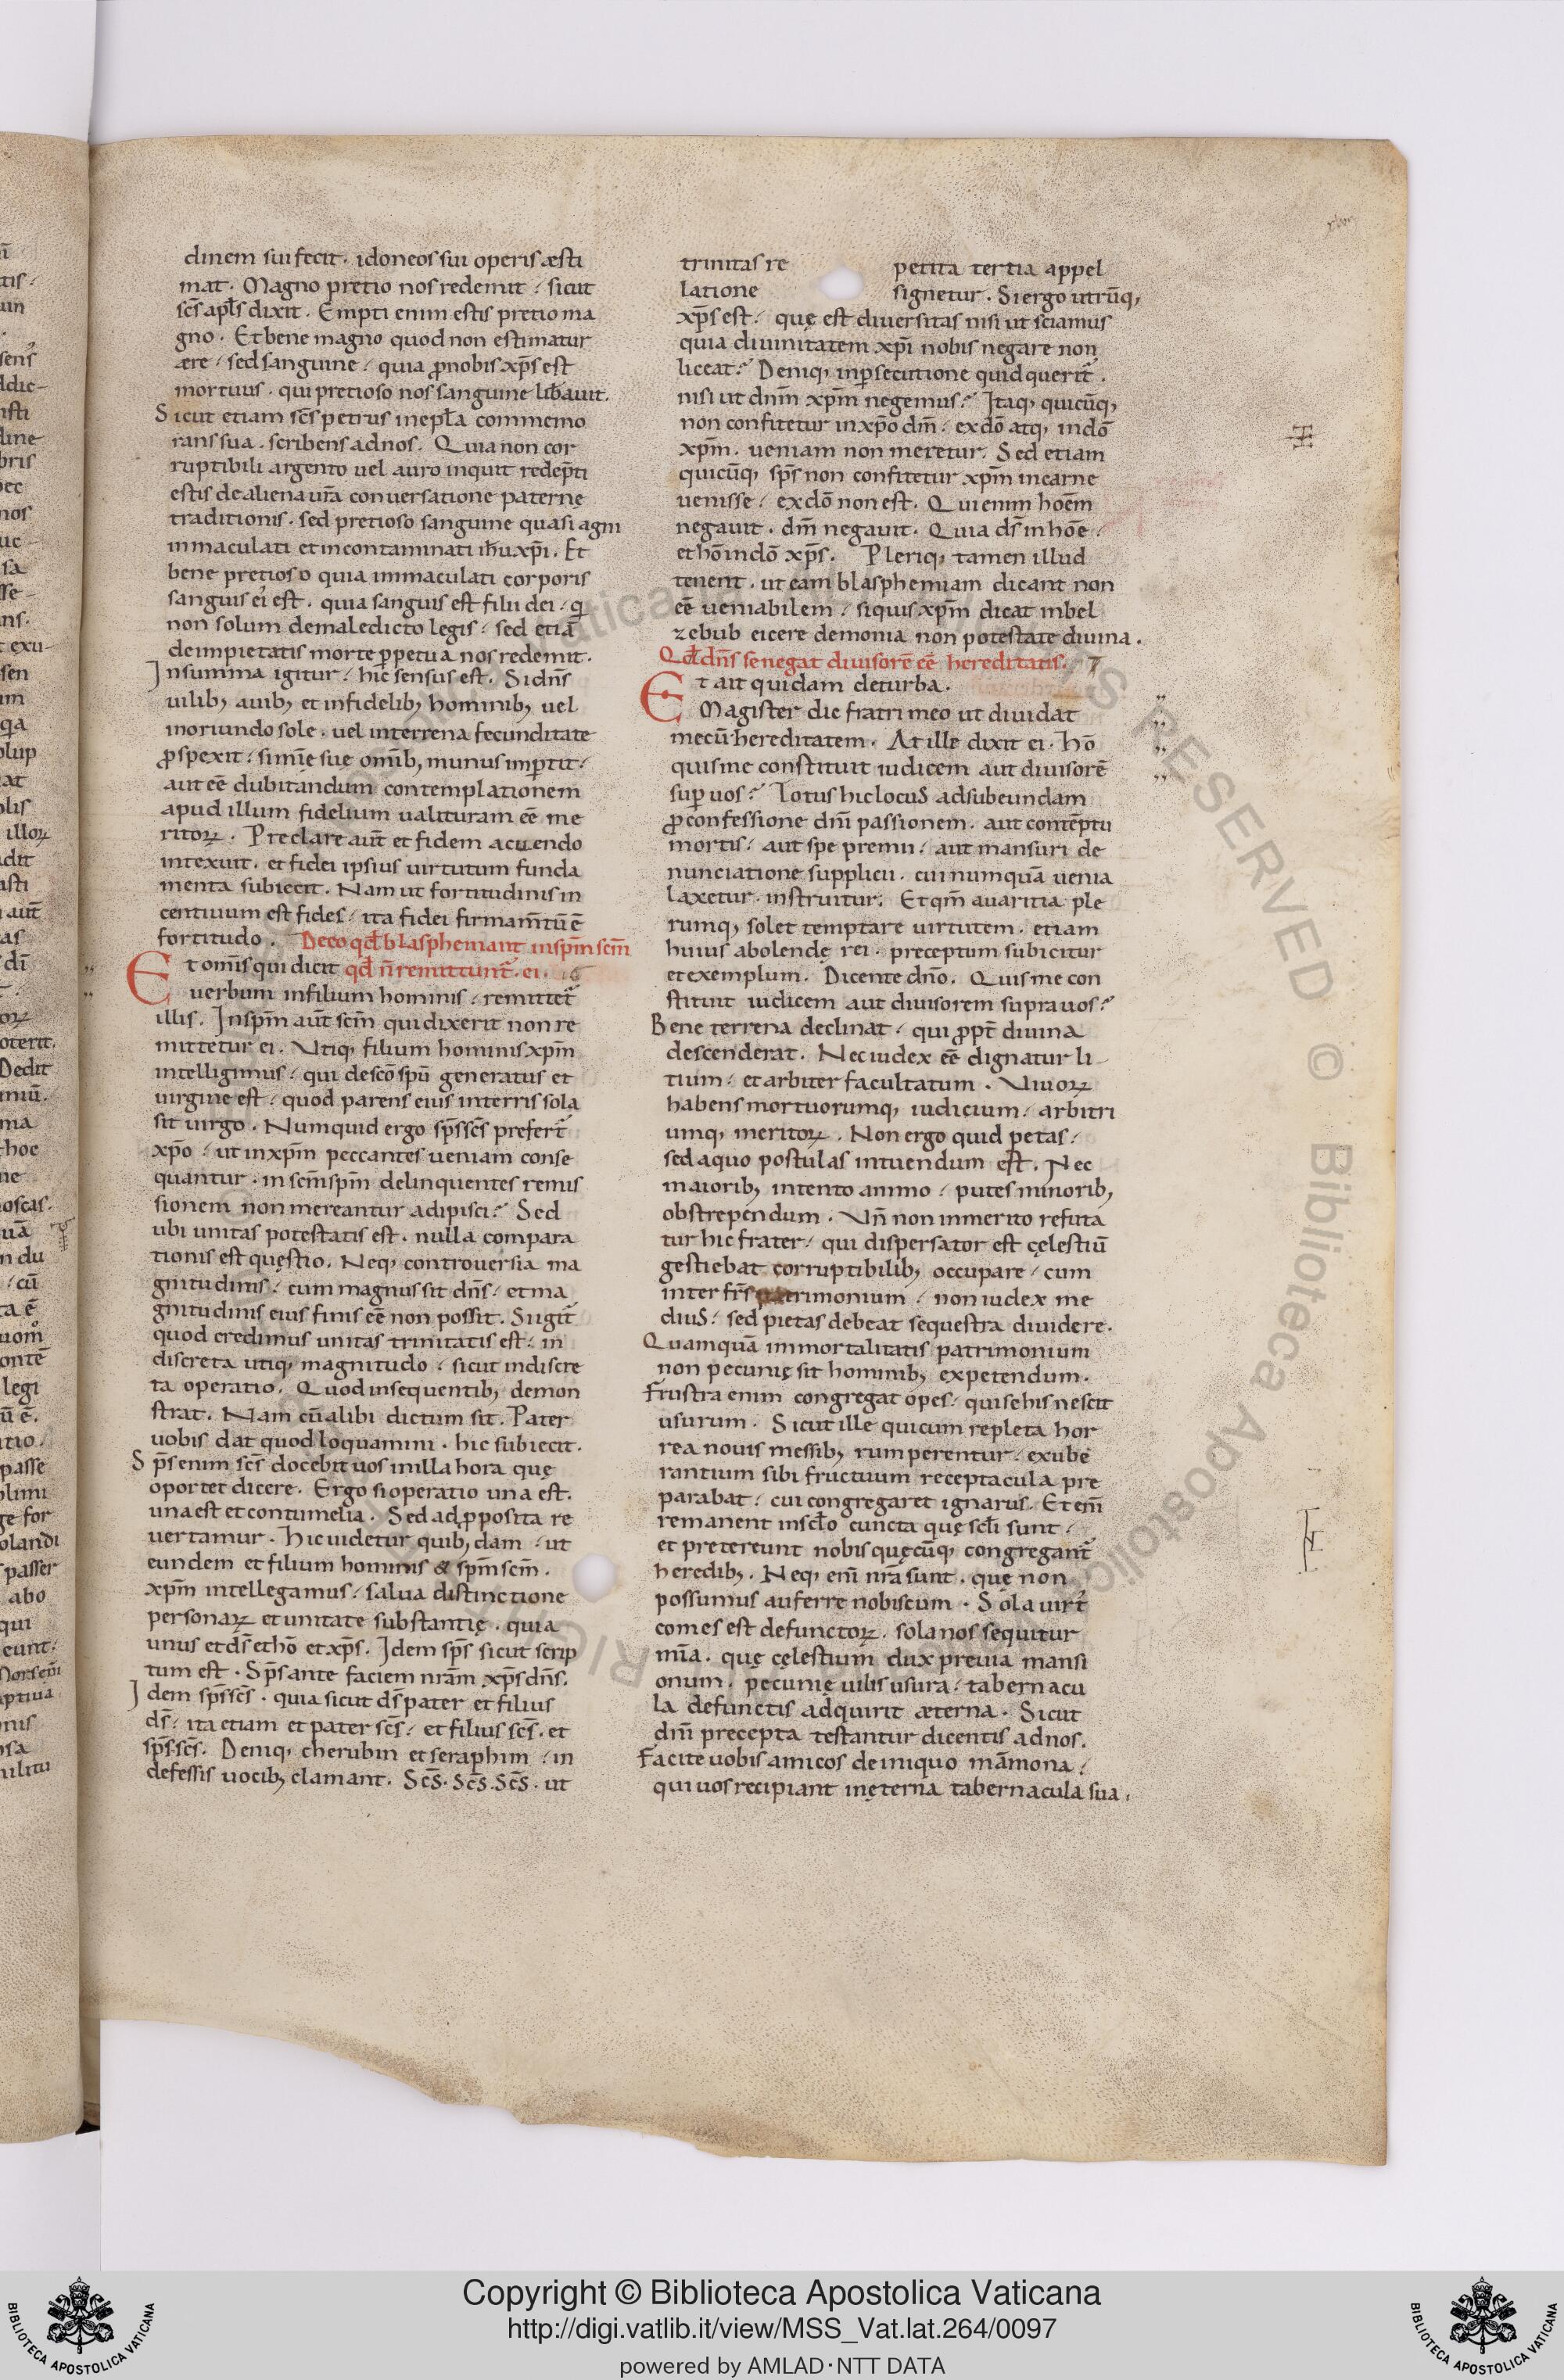 dinem sui fecit. idoneos sui operis æsti
mat. Magno pretio nos redemit / sicut
scs̄ apl̄s dixit. Empti enim estis pretio ma
gno. Et bene magno quod non estimatur
ære / sed sanguine / quia ꝓ nobis xp̄s est
mortuus. qui pretioso nos sanguine lib̄auit.
Sicut etiam scs̄ petrus in epl̄a commemo
rans sua. scribens ad nos. Quia non cor
ruptibili argento uel auro inquit redēpti
estis de aliena ur̄a conuersatione paternę
traditionis. sed pretioso sanguine quasi agni
inmaculati et incontaminati ih̄u xp̄i. Et
bene pretioso quia immaculati corporis
sanguis ei᾽ est. quia sanguis est filii dei / q̄
non solum de maledicto legis / sed etiā
de impietatis morte ꝑpetua nos redemit.
In summa igitur / hic sensus est. Si dn̄s
uilib; auib; et infidelib; hominib; uel
inoriundo sole. uel interrena fecunditate
ꝓspexit / sinię suę omīb; munus inꝑtit /
aut eē dubitandum contemplationem
apud illum fidelium ualituram eē me
ritoꝝ. Preclare aut̄ et fidem acuendo
intexuit. et fidei ipsius uirtutum funda
menta subiecit. Nam ut fortitudinis in
centiuum est fides / ita fidei firmam̄tū ē
fortitudo. De eo qd̄ blasphemant in spm̄ scm̄
Et omīs qui dicit qd̄ n̄ remittunt᾽. ei. 16
uerbum in filium hominis / remittet᾽
illis. In spm̄ aut̄ scm̄ qui dixerit non re
mittetur ei. Vtiq; filium hominis xpm̄
intelligimus / qui de scō spū generatus et
uirgine est / quod parens eius interris sola
sit uirgo. Numquid ergo sp̄s scs̄ prefert᾽
xp̄o / ut in xpm̄ peccantes ueniam conse
quantur. in scm̄ spm̄ delinquentes remis
sionem non mereantur adipisci? Sed
ubi unitas potestatis est. nulla compara
tionis est quęstio. Neq; controuersia ma
gnitudinis / cum magnus sit dn̄s / et ma
gnitudinis eius finis eē non possit. Si igit᾽
quod credimus unitas trinitatis est / in
discreta utiq; magnitudo / sicut indiscre
ta operatio. Quod in sequentib; demon
strat. Nam cū alibi dictum sit. Pater
uobis dat quod loquamini. hic subiecit.
Sp̄s enim scs̄ docebit uos in illa hora quę
oportet dicere. Ergo si operatio una est.
una est et contumelia. Sed ad ꝓposita re
uertamur. Hic uidetur quib; dam / ut
eundem et filium hominis & spm̄ scm̄.
xpm̄ intellegamus / salua distinctione
personaꝝ et unitate substantię. quia
unus et ds̄ et hō et xp̄s. Idem sp̄s sicut scrip
tum est. Sp̄s ante faciem nrām xp̄s dn̄s.
Idem sp̄s scs̄. quia sicut ds̄ pater et filius
ds̄ / ita etiam et pater scs̄ / et filius scs̄. et
sp̄s scs̄. Deniq; cherubin et seraphim / in
defessis uocib; clamant. Scs̄. Scs̄. Scs̄. ut
trinitas re petita tertia appel
latione signetur. Si ergo utrūq;
xp̄s est / quę est diuersitas nisi ut sciamus
quia diuinitatem xp̄i nobis negare non
liceat? Deniq; in ꝑsecutione quid querit᾽.
nisi ut dnm̄ xpm̄ negemus? Itaq; quicūq;
non confitetur in xp̄o dm̄ / ex dō atq; in dō
xpm̄. ueniam non meretur. Sed etiam
quicūq; sp̄s non confitetur xpm̄ in carne
uenisse / ex dō non est. Qui enim hoēm
negauit. dm̄ negauit. Quia ds̄ in hōe /
et hō in dō xp̄s. Pleriq; tamen illud
tenent. ut eam blasphemiam dicant non
eē ueniabilem / siquis xpm̄ dicat in bel
zebub eicere demonia non potestate diuina.
Qd̄ dn̄s se negat diuisorē eē hereditatis. 7
Et ait quidam de turba.
Magister dic fratri meo ut diuidat
mecū hereditatem. At ille dixit ei. Hō
quis me constituit iudicem aut diuisorē
suꝑ uos? Totus hic locus ad subeundam
ꝓ confessione dn̄i passionem. aut contēptu
mortis / aut spe premii / aut mansuri de
nunciatione supplicii. cui numquā uenia
laxetur. instruitur. Et qm̄ auaritia ple
rumq; solet temptare uirtutem. etiam
huius abolendę rei. preceptum subicitur
et exemplum. Dicente dn̄o. Quis me con
stituit iudicem aut diuisorem supra uos?
Bene terrena declinat / qui ꝓpt̄ diuina
descenderat. Nec iudex eē dignatur li-
tium / et arbiter facultatum. Viuoꝝ
habens mortuorumq; iudicium / arbitri
umq; meritoꝝ. Non ergo quid petas /
sed a quo postulas intuendum est. Nec
maiorib; intento animo / putes minorib;
obstrependum. Vn̄ non inmerito refuta
tur hic frater / qui dispersator est cęlestiū
gestiebat corruptibilib; occupare / cum
inter fr̄s patrimonium / non iudex me
dius / sed pietas debeat sequestra diuidere.
Quamquā immortalitatis patrimonium
non pecunię sit hominib; expetendum.
Frustra enim congregat opes / qui se his nescit
usurum. Sicut ille qui cum repleta hor
rea nouis messib; rumperentur / exube
rantium sibi fructuum receptacula pre
parabat / cui congregaret ignarus. Et em̄
remanent in scl̄o cuncta quę scl̄i sunt /
et pretereunt nobis quęcūq; congregant᾽
heredib;. Neq; eni̅ nr̄a sunt. quę non
possumus auferre nobiscum. Sola uirt᾽
comes est defunctoꝝ. sola nos sequitur
mīa. quę cęlestium dux preuia mansi
onum. pecunię uilis usura / tabernacu
la defunctis adquirit æterna. Sicut
dn̄i precepta testantur dicentis ad nos.
Facite uobis amicos de iniquo māmona /
qui uos recipiant in ęterna tabernacula sua.
Copyright © Biblioteca Apostolica Vaticana
http://digi.vatlib.it/view/MSS_Vat.lat.264/0097
powered by AMLAD·NTT DATA
BIBLIOTECA APOSTOLICA VATICANA
BIBLIOTECA APOSTOLICA VATICANA